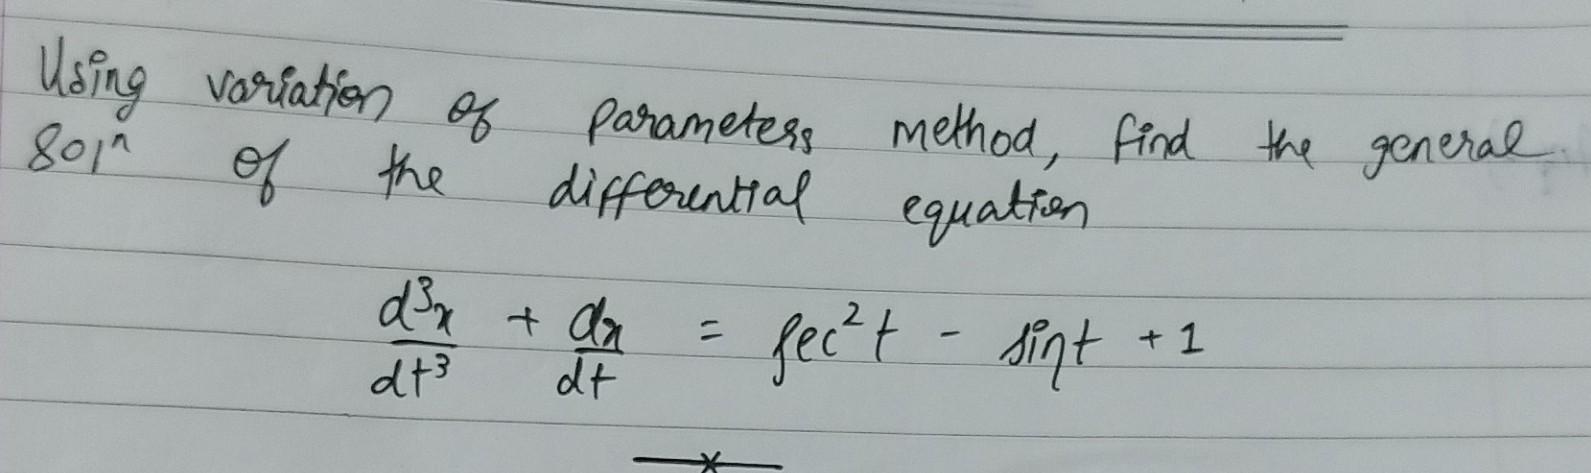 Using variation of parameters method, find the general
Solⁿ of the differential equation
d³x/dt³ + dx/dt = sec²t - sint + 1